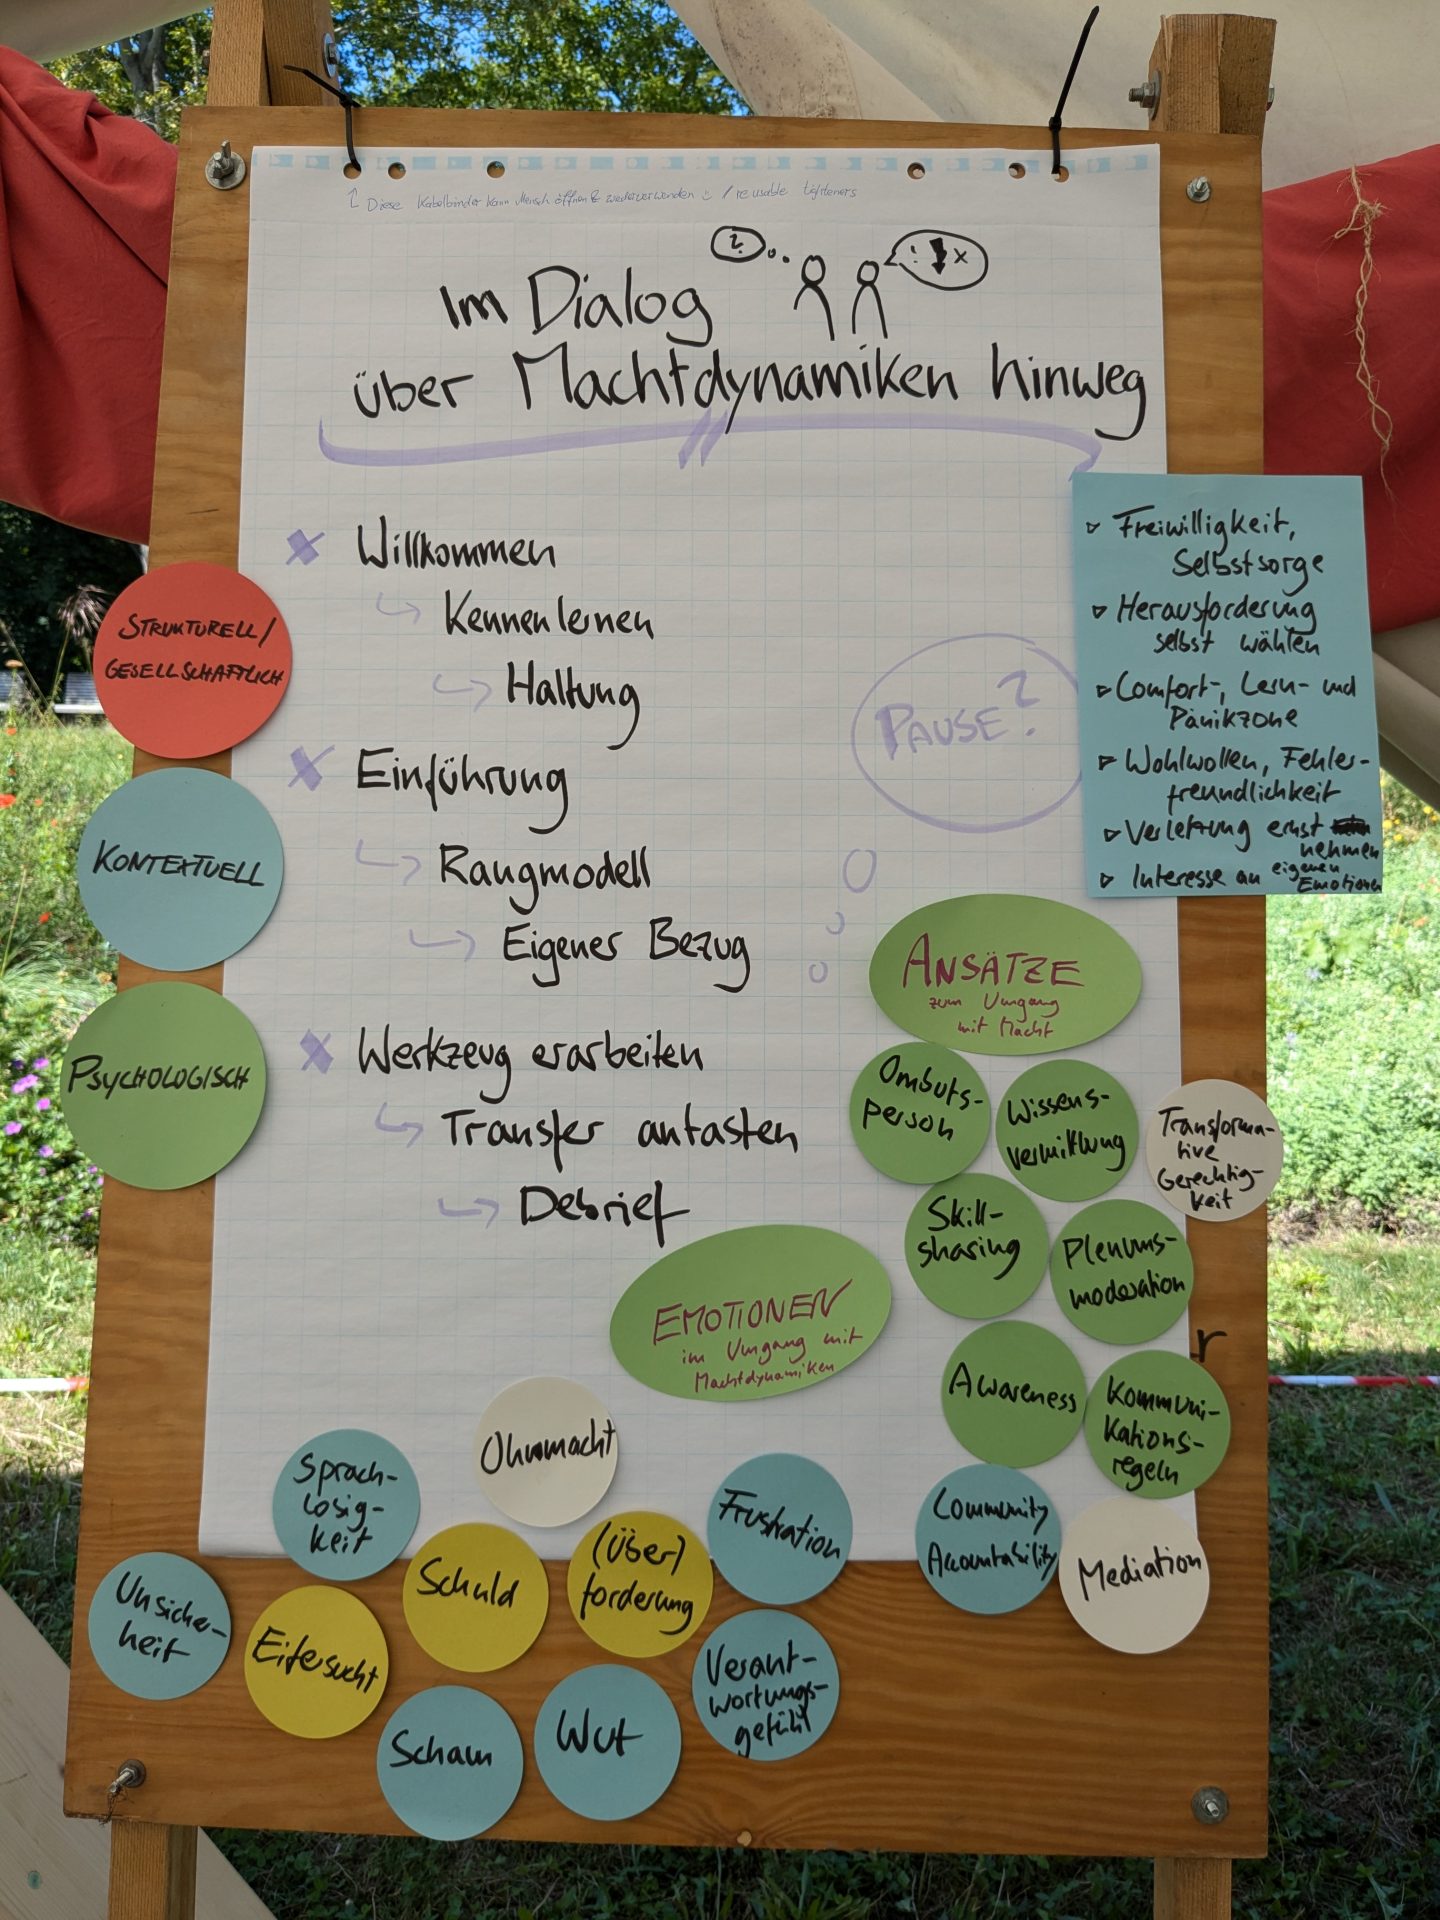 ↑ Diese Kabelbinder kann Mensch öffnen & wiederverwenden :) / reusable tighteners
? ! x
Im Dialog
über Machtdynamiken hinweg
x Willkommen
↳ Kennenlernen
↳ Haltung
x Einführung
↳ Rangmodell
↳ Eigener Bezug
x Werkzeug erarbeiten
↳ Transfer antasten
↳ Debrief
PAUSE?
▹ Freiwilligkeit,
Selbstsorge
▹ Herausforderung
selbst wählen
▹ Comfort-, Lern- und
Panikzone
▹ Wohlwollen, Fehler-
freundlichkeit
▹ Verletzung ernst
nehmen
▹ Interesse an eigenen
Emotionen
STRUKTURELL/
GESELLSCHAFTLICH
KONTEXTUELL
PSYCHOLOGISCH
ANSÄTZE
zum Umgang
mit Macht
Ombuts-
person
Wissens-
vermittlung
Transforma-
tive
Gerechtig-
keit
Skill-
sharing
Plenums-
moderation
Awareness
Kommuni-
kations-
regeln
Community
Accountability
Mediation
r
EMOTIONEN
im Umgang mit
Machtdynamiken
Ohnmacht
Sprach-
losig-
keit
Frustration
(Über)
forderung
Schuld
Unsicher-
heit
Eifersucht
Verant-
wortungs-
gefühl
Scham
Wut